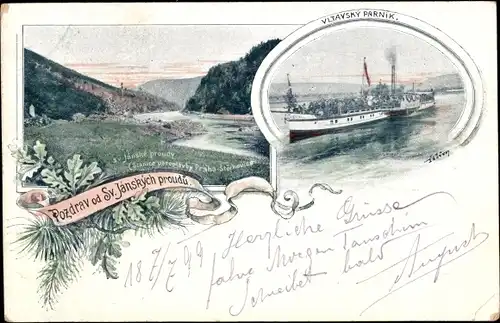 VLTAVSKÝ PARNIK.
Sv. Jánské proudy
Pozdrav od Sv. Jánských proudů.
18 7/7 99 Herzliche Grüsse
fahre Morgen
Schreibet bald
August